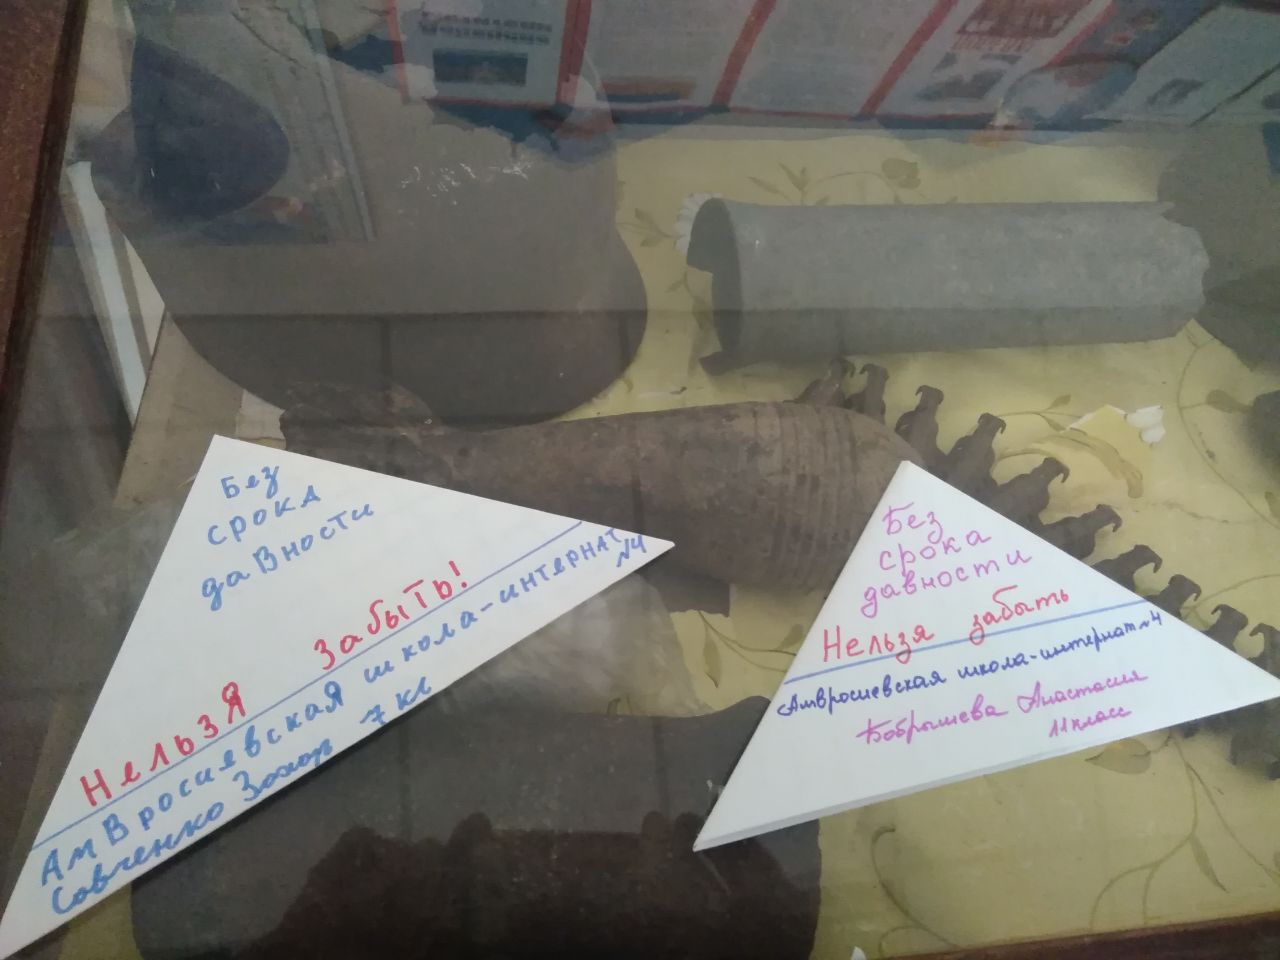 Без
срока
даВности
НельзЯ Забыть!
АмВросиевскаЯ школа-интернат
№4
Савченко Захар 7 кл
Без
срока
давности
Нельзя забыть
Амвросиевская школа-интернат №4
Бобрышева Анастасия
11 класс